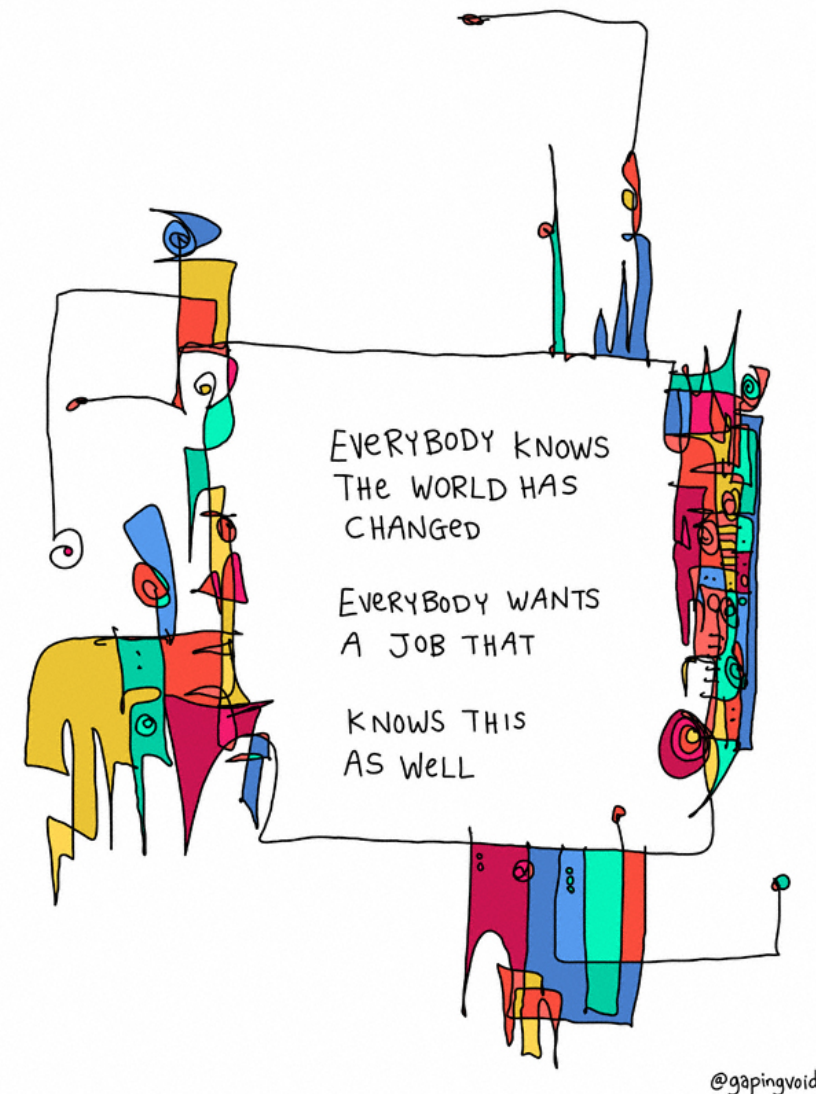 EVERYBODY KNOWS
THE WORLD HAS
CHANGED
EVERYBODY WANTS
A JOB THAT
KNOWS THIS
AS WELL
@gapingvoid